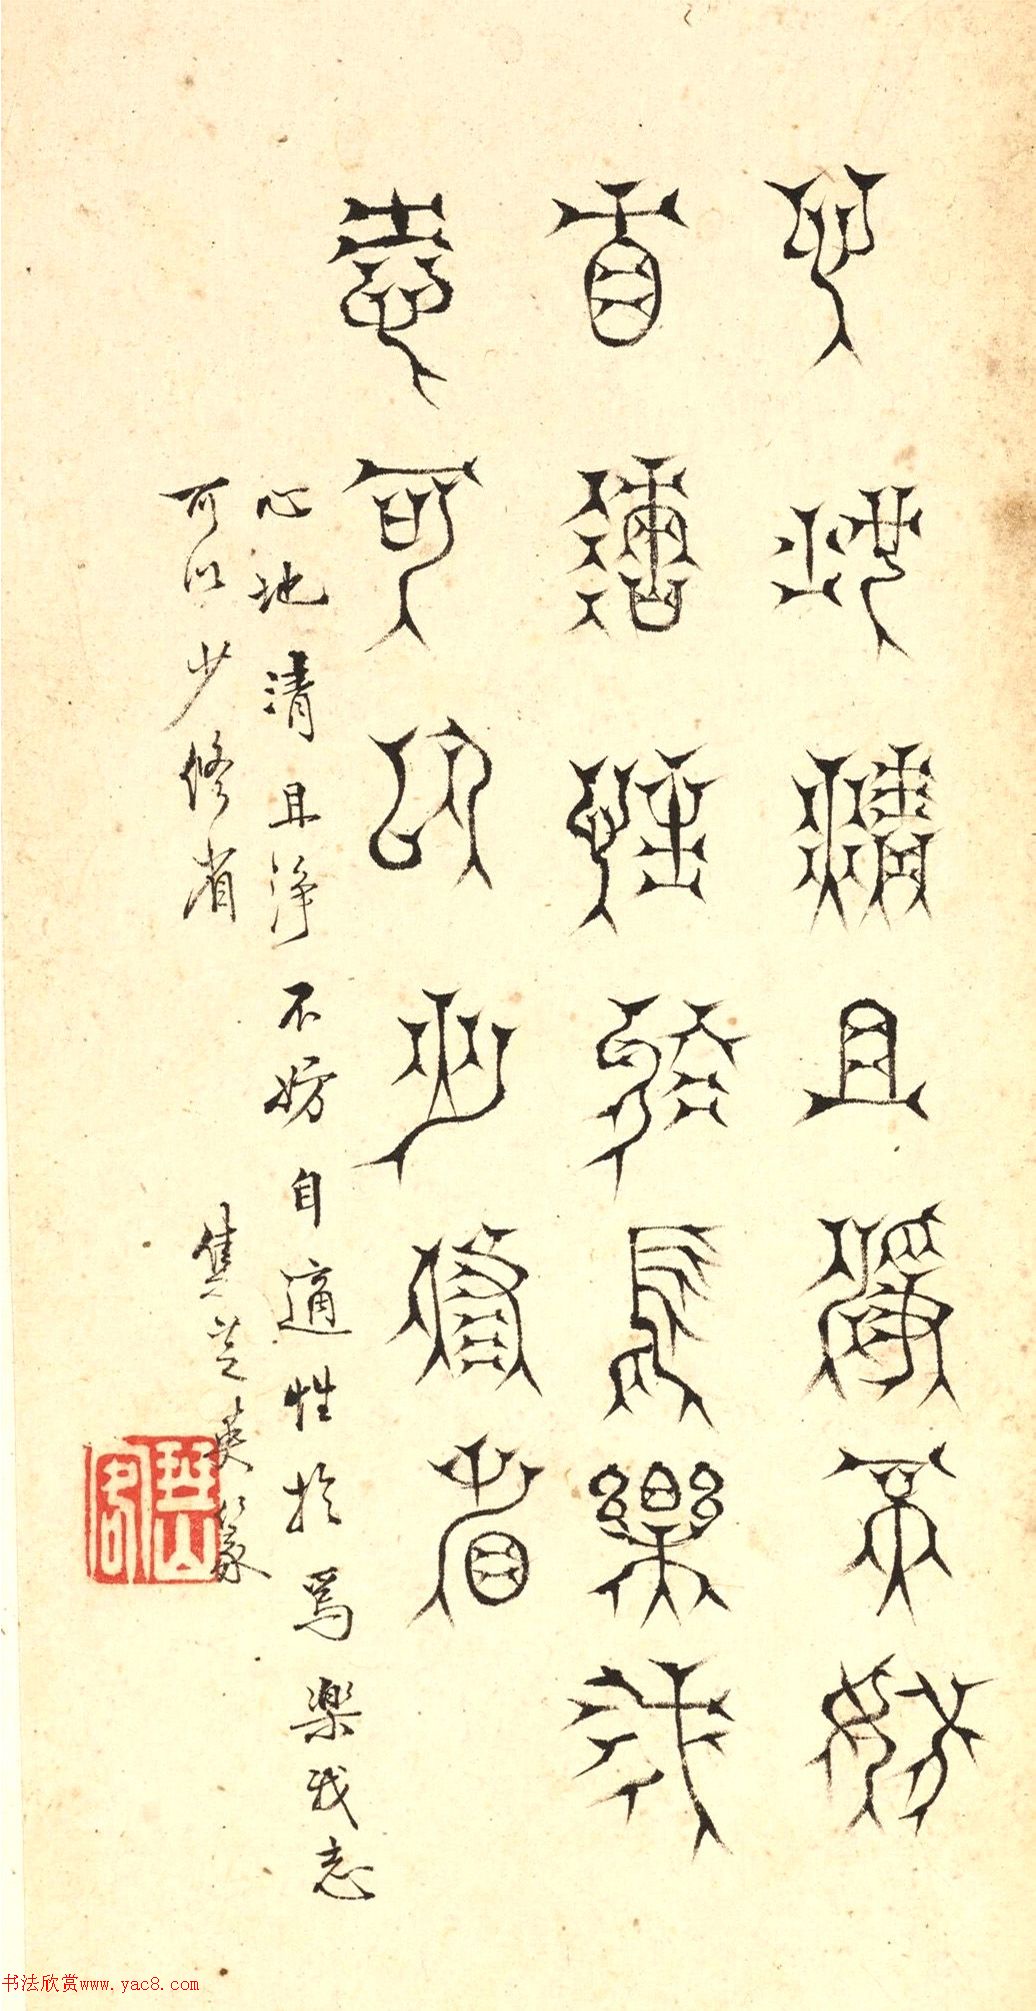 心地清且淨不妨
自適性於焉樂我
志可以少修省
心地清且淨不妨自適性於焉樂我志
可以少修省
集芝英篆
书法欣赏www.yac8.com